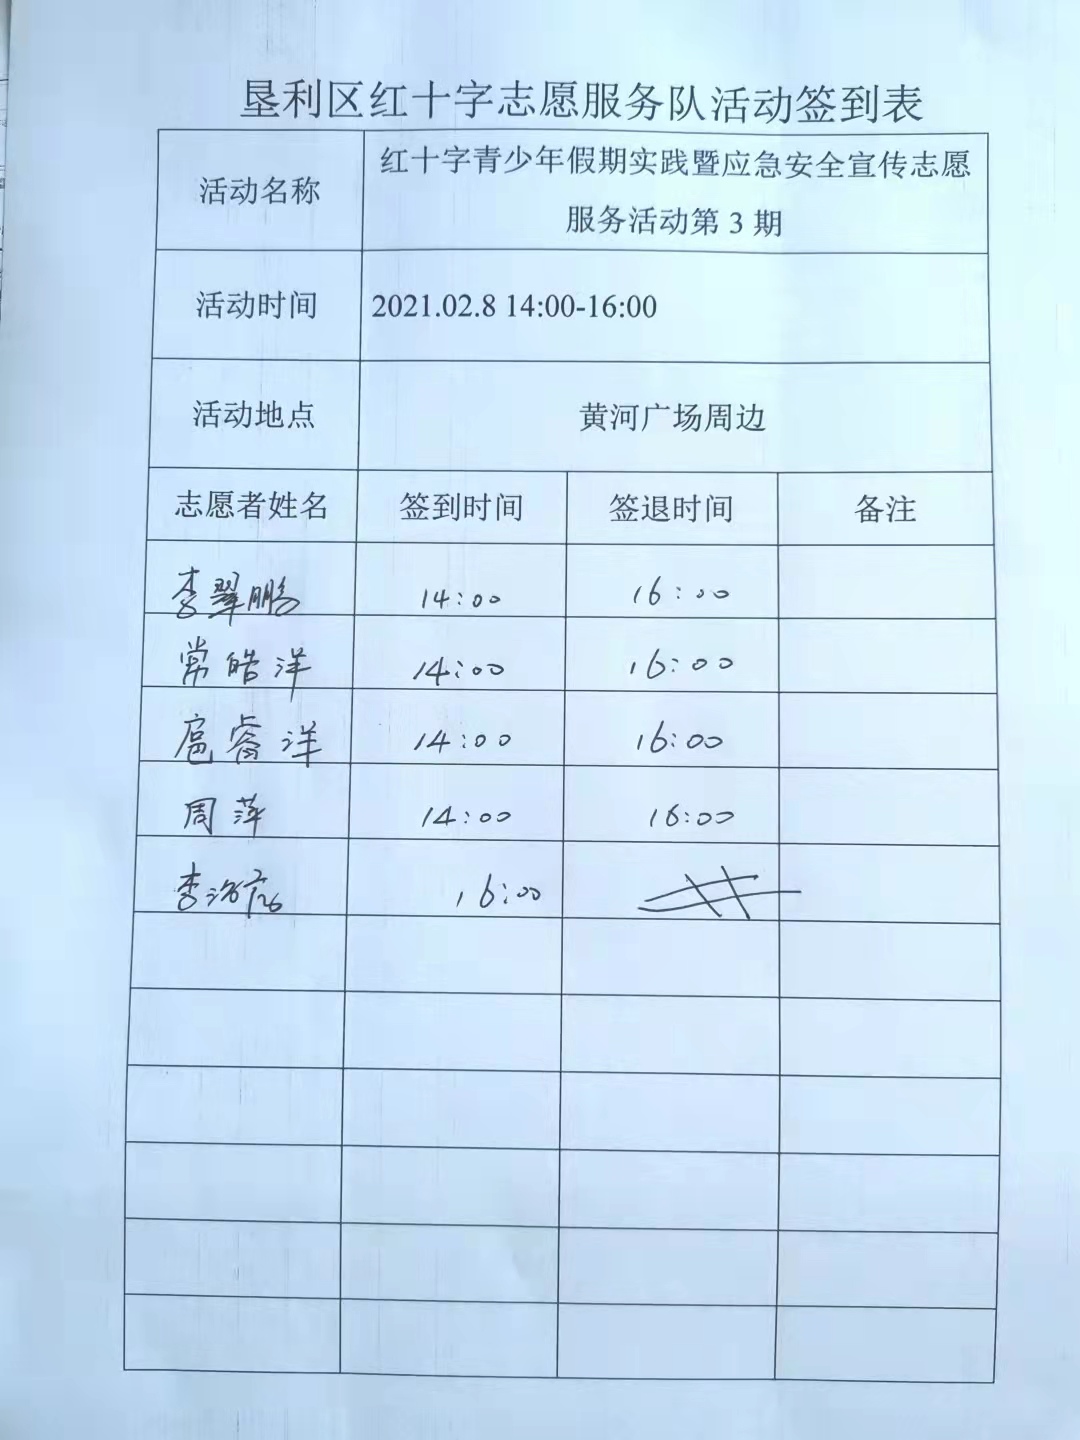 垦利区红十字志愿服务队活动签到表
活动名称
红十字青少年假期实践暨应急安全宣传志愿
服务活动第 3 期
活动时间 2021.02.8 14:00-16:00
活动地点 黄河广场周边
志愿者姓名 签到时间 签退时间 备注
李翠鹏 14:00 16:00
常皓洋 14:00 16:00
扈睿洋 14:00 16:00
周萍 14:00 16:00
李 16:00